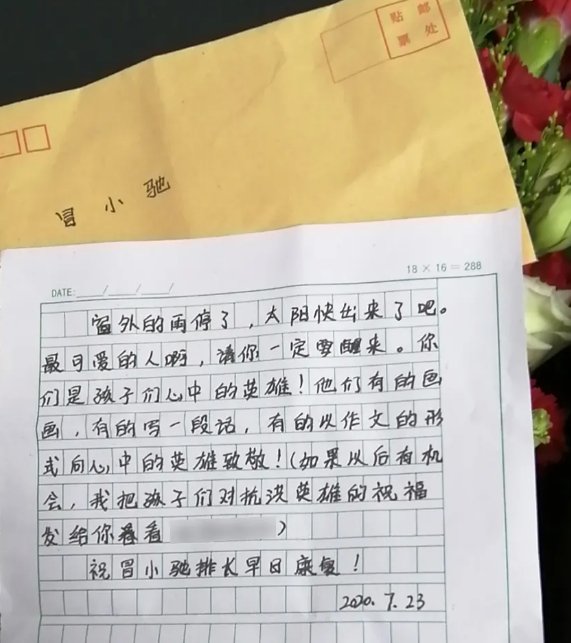 贴 邮
票 处
冒小驰
18 × 16 = 288
DATE: ___/___/___
窗外的雨停了，太阳快出来了吧。
最可爱的人啊，请你一定要醒来。你
们是孩子们心中的英雄！他们有的画
画，有的写一段话，有的以作文的形
式向心中的英雄致敬！（如果以后有机
会，我把孩子们对抗洪英雄的祝福
发给你看看）
祝冒小驰排长早日康复！
2020.7.23